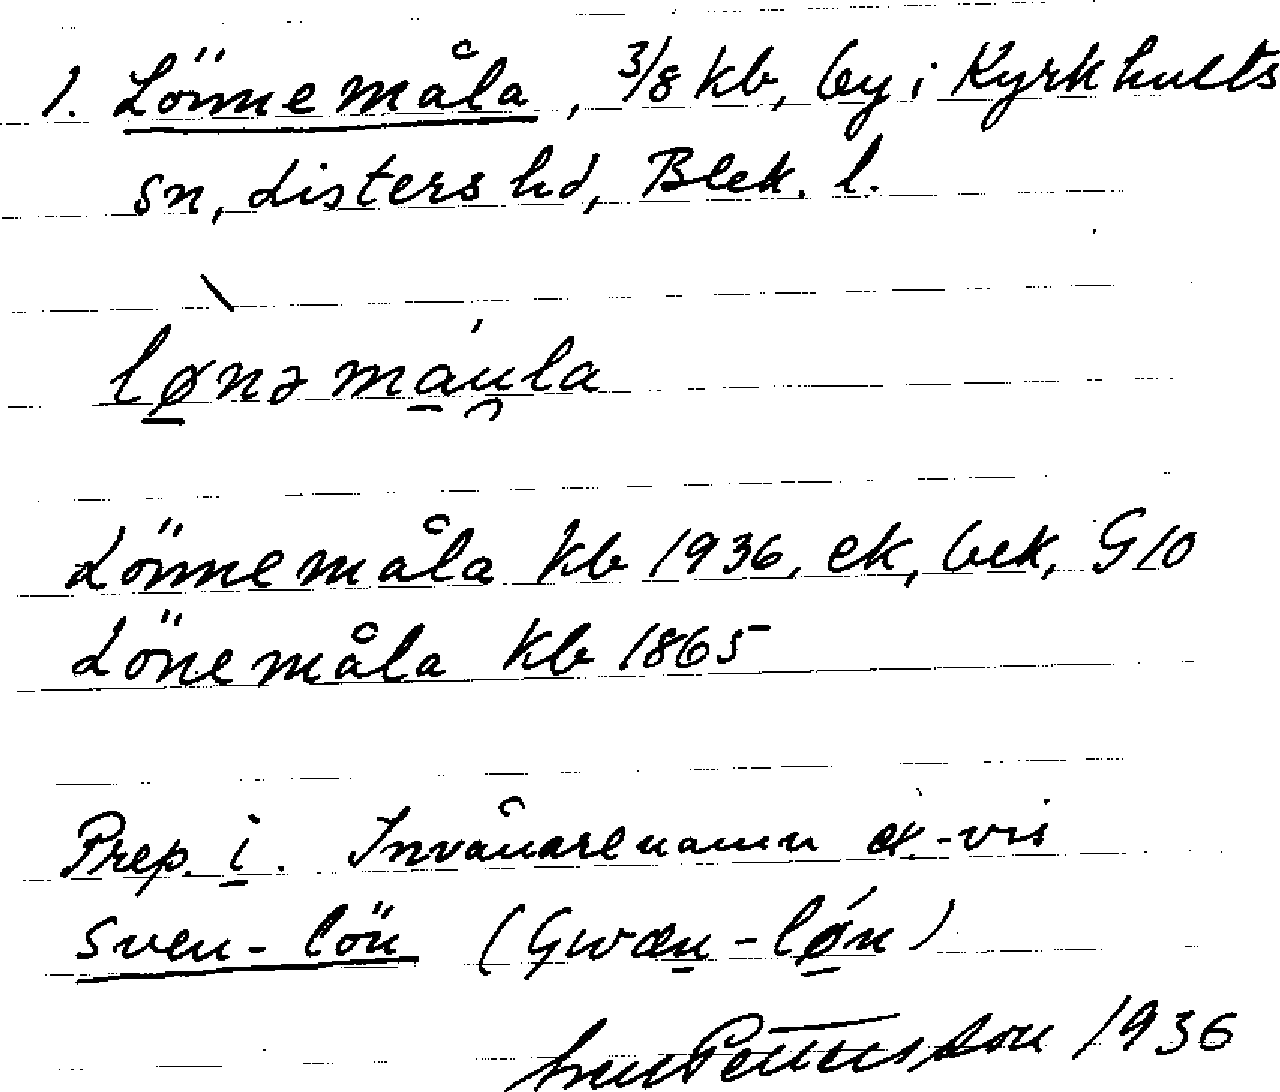 1. Lönnemåla, 3/8 kb, by i Kyrkhults
sn, Listers hd, Blek. l.
lønəmáu̯la
Lönnemåla kb 1936, ek, bek, G10
Lönemåla kb 1865
Prep. i. Invånarenamn ex.-vis
Sven-lön (Gwæn-lǿn)
Pettersson 1936